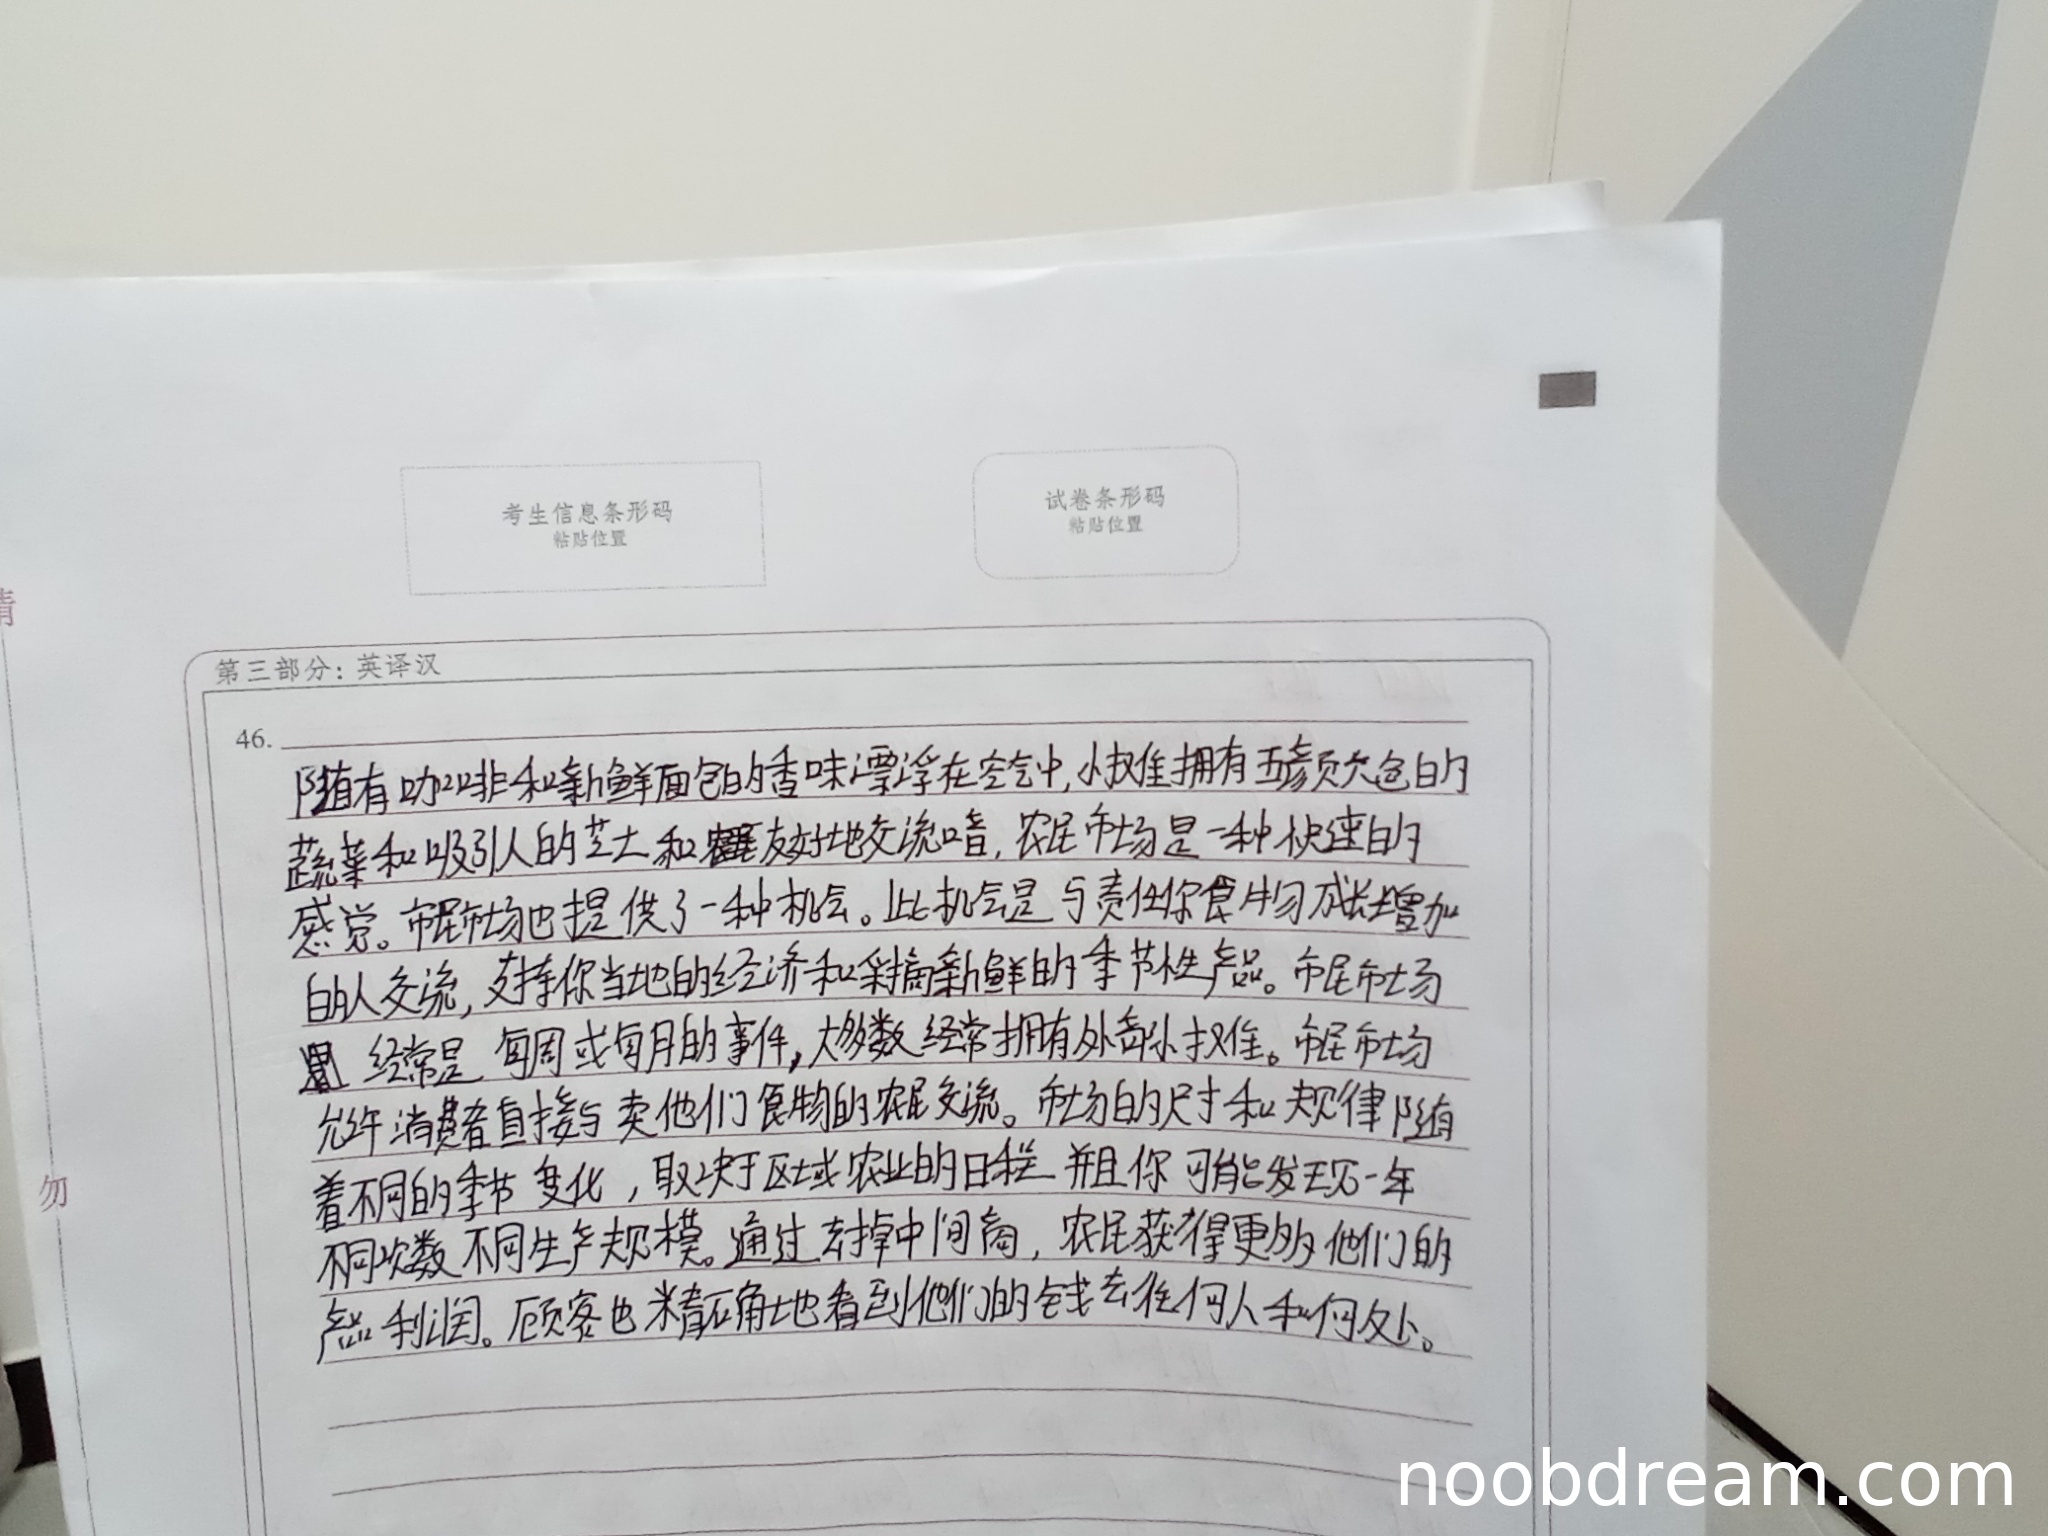 考生信息条形码
粘贴位置
试卷条形码
粘贴位置
第三部分：英译汉
46.
随有咖啡和新鲜面包的香味漂浮在空气中,小摊拥有五彩颜色的
蔬菜和吸引人的芝士和友好地交流口音,农民市场是一种快速的
感觉。市民市场也提供了一种机会。此机会是与责任你食物成长增加
的人交流,支持你当地的经济和采摘新鲜的季节性产品。市民市场
经常是 每周或每月的事件,大多数经常拥有外部小摊。市民市场
允许消费者直接与卖他们食物的农民交流。市场的尺寸和规律随
着不同的季节变化,取决于区域农业的日程并且你可能发现一年
不同次数不同生产规模。通过去掉中间商,农民获得更多他们的
产品利润。顾客也精确地看到他们的钱去任何人和何处。
勿
noobdream.com